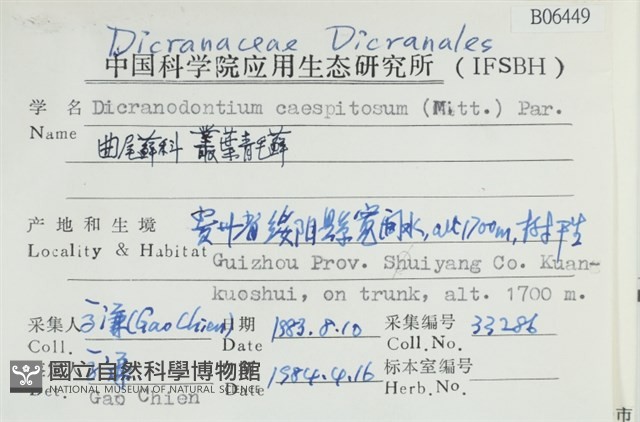 B06449
Dicranaceae Dicranales
中国科学院应用生态研究所 (IFSBH)
学名 Dicranodontium caespitosum (Mitt.) Par.
Name
曲尾蘚科 叢葉青毛蘚
产地和生境 貴州省绥阳縣寬闊水, alt 1700m, 树干生
Locality & Habitat Guizhou Prov. Shuiyang Co. Kuan-
kuoshui, on trunk, alt. 1700 m.
采集人 谦 (Gao Chien) 日期 1983.8.10 采集编号 33286
Coll. Date Coll.No.
谦 1984.4.16 标本室编号
國立自然科學博物館
NATIONAL MUSEUM OF NATURAL SCIENCE
Det. Gao Chien Date Herb.No.
市